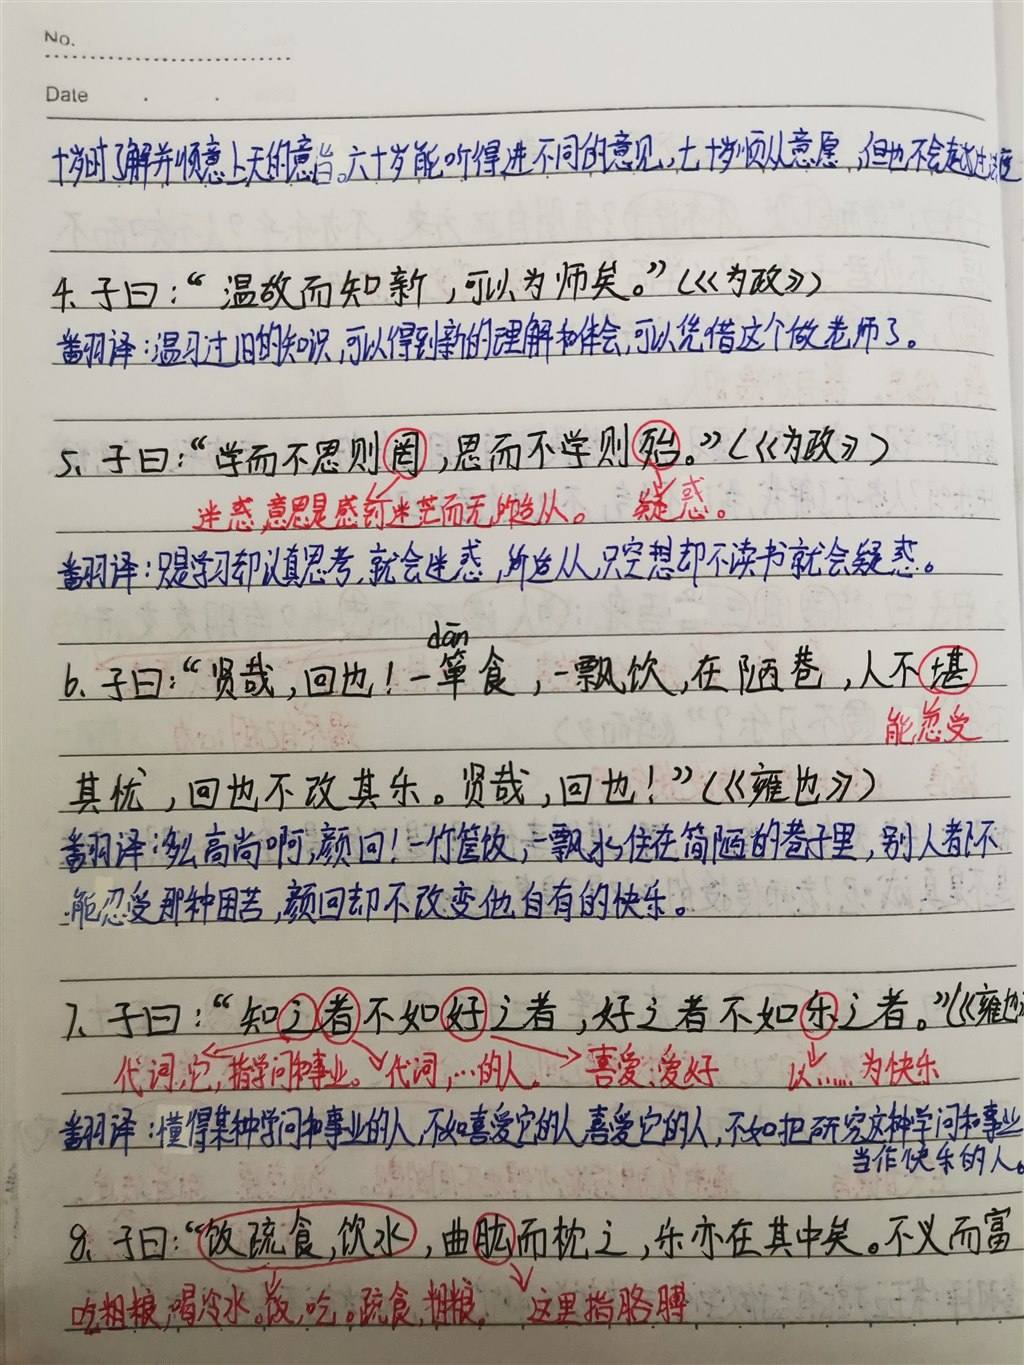 No.
Date
十岁时了解并顺意上天的意旨。六十岁能听得进不同的意见,七十岁顺从意愿,但也不会超过法度
4. 子曰:“温故而知新,可以为师矣。”(《为政》)
翻译:温习过旧的知识,可以得到新的理解和体会,可以凭借这个做老师了。
5. 子曰:“学而不思则罔,思而不学则殆。”(《为政》)
迷惑,意思是感到迷茫而无所适从。 疑惑。
翻译:只是学习却认真思考,就会迷惑,所适从,只空想却不读书就会疑惑。
dān
6. 子曰:“贤哉,回也!一箪食,一飘饮,在陋巷,人不堪
能忍受
其忧,回也不改其乐。贤哉,回也!”(《雍也》)
翻译:多么高尚啊,颜回!一竹筐饭,一飘水,住在简陋的巷子里,别人都不
能忍受那种困苦,颜回却不改变他自有的快乐。
7. 子曰:“知之者不如好之者,好之者不如乐之者。”(《雍也》
代词,它,指学问和事业。 代词,…的人。 喜爱;爱好 以……为快乐
翻译:懂得某种学问和事业的人,不如喜爱它的人,喜爱它的人,不如把研究这种学问和事业
当作快乐的人。
8. 子曰:“饭疏食,饮水,曲肱而枕之,乐亦在其中矣。不义而富
吃粗粮,喝冷水。饭,吃。疏食,粗粮。 这里指胳膊